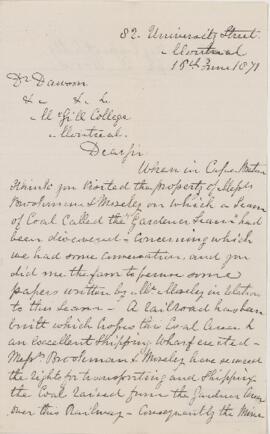 82. University Street
Montreal
15th June 1871
Dr Dawson
&c &c
McGill College
Montreal.
Dear Sir
When in Cape Breton
I think you visited the property of Messrs
Brookman & Moseley on which a Seam
of Coal Called the "Gardener Seam" had
been discovered - Concerning which
we had some conversation and you
did me the favor to peruse some
papers written by Mr Moseley in relation
to this Seam - A railroad has been
built which crosses the Coal Area &
an excellent Shipping Wharf erected -
Messrs Brookman & Moseley have secured
the right for transporting and Shipping
the Coal raised from the Gardner Area
over this Railway - Consequently the Mine